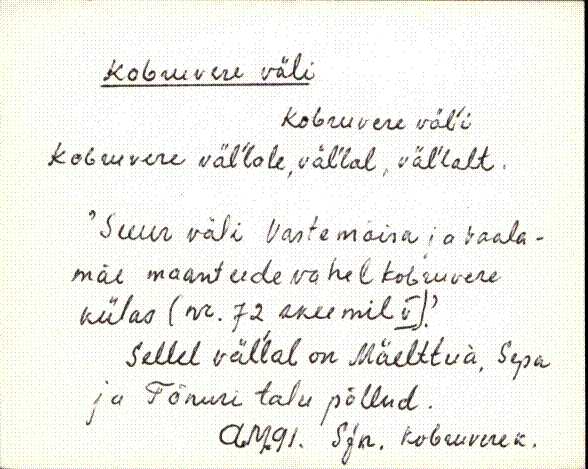 Kobruvere väli
Kobruvere väl'i
Kobruvere väl'lale, väl'lal, väl'lalt.
"Suur väli Vastemõisa ja Kaala-
mäe maanteede vahel Kobruvere
külas (nr. 72, skeemil V)."
Sellel väl'lal on Mäelttua, Sepa
ja Tõnuri talu põllud.
AM91. Sjn. Kobruvere k.